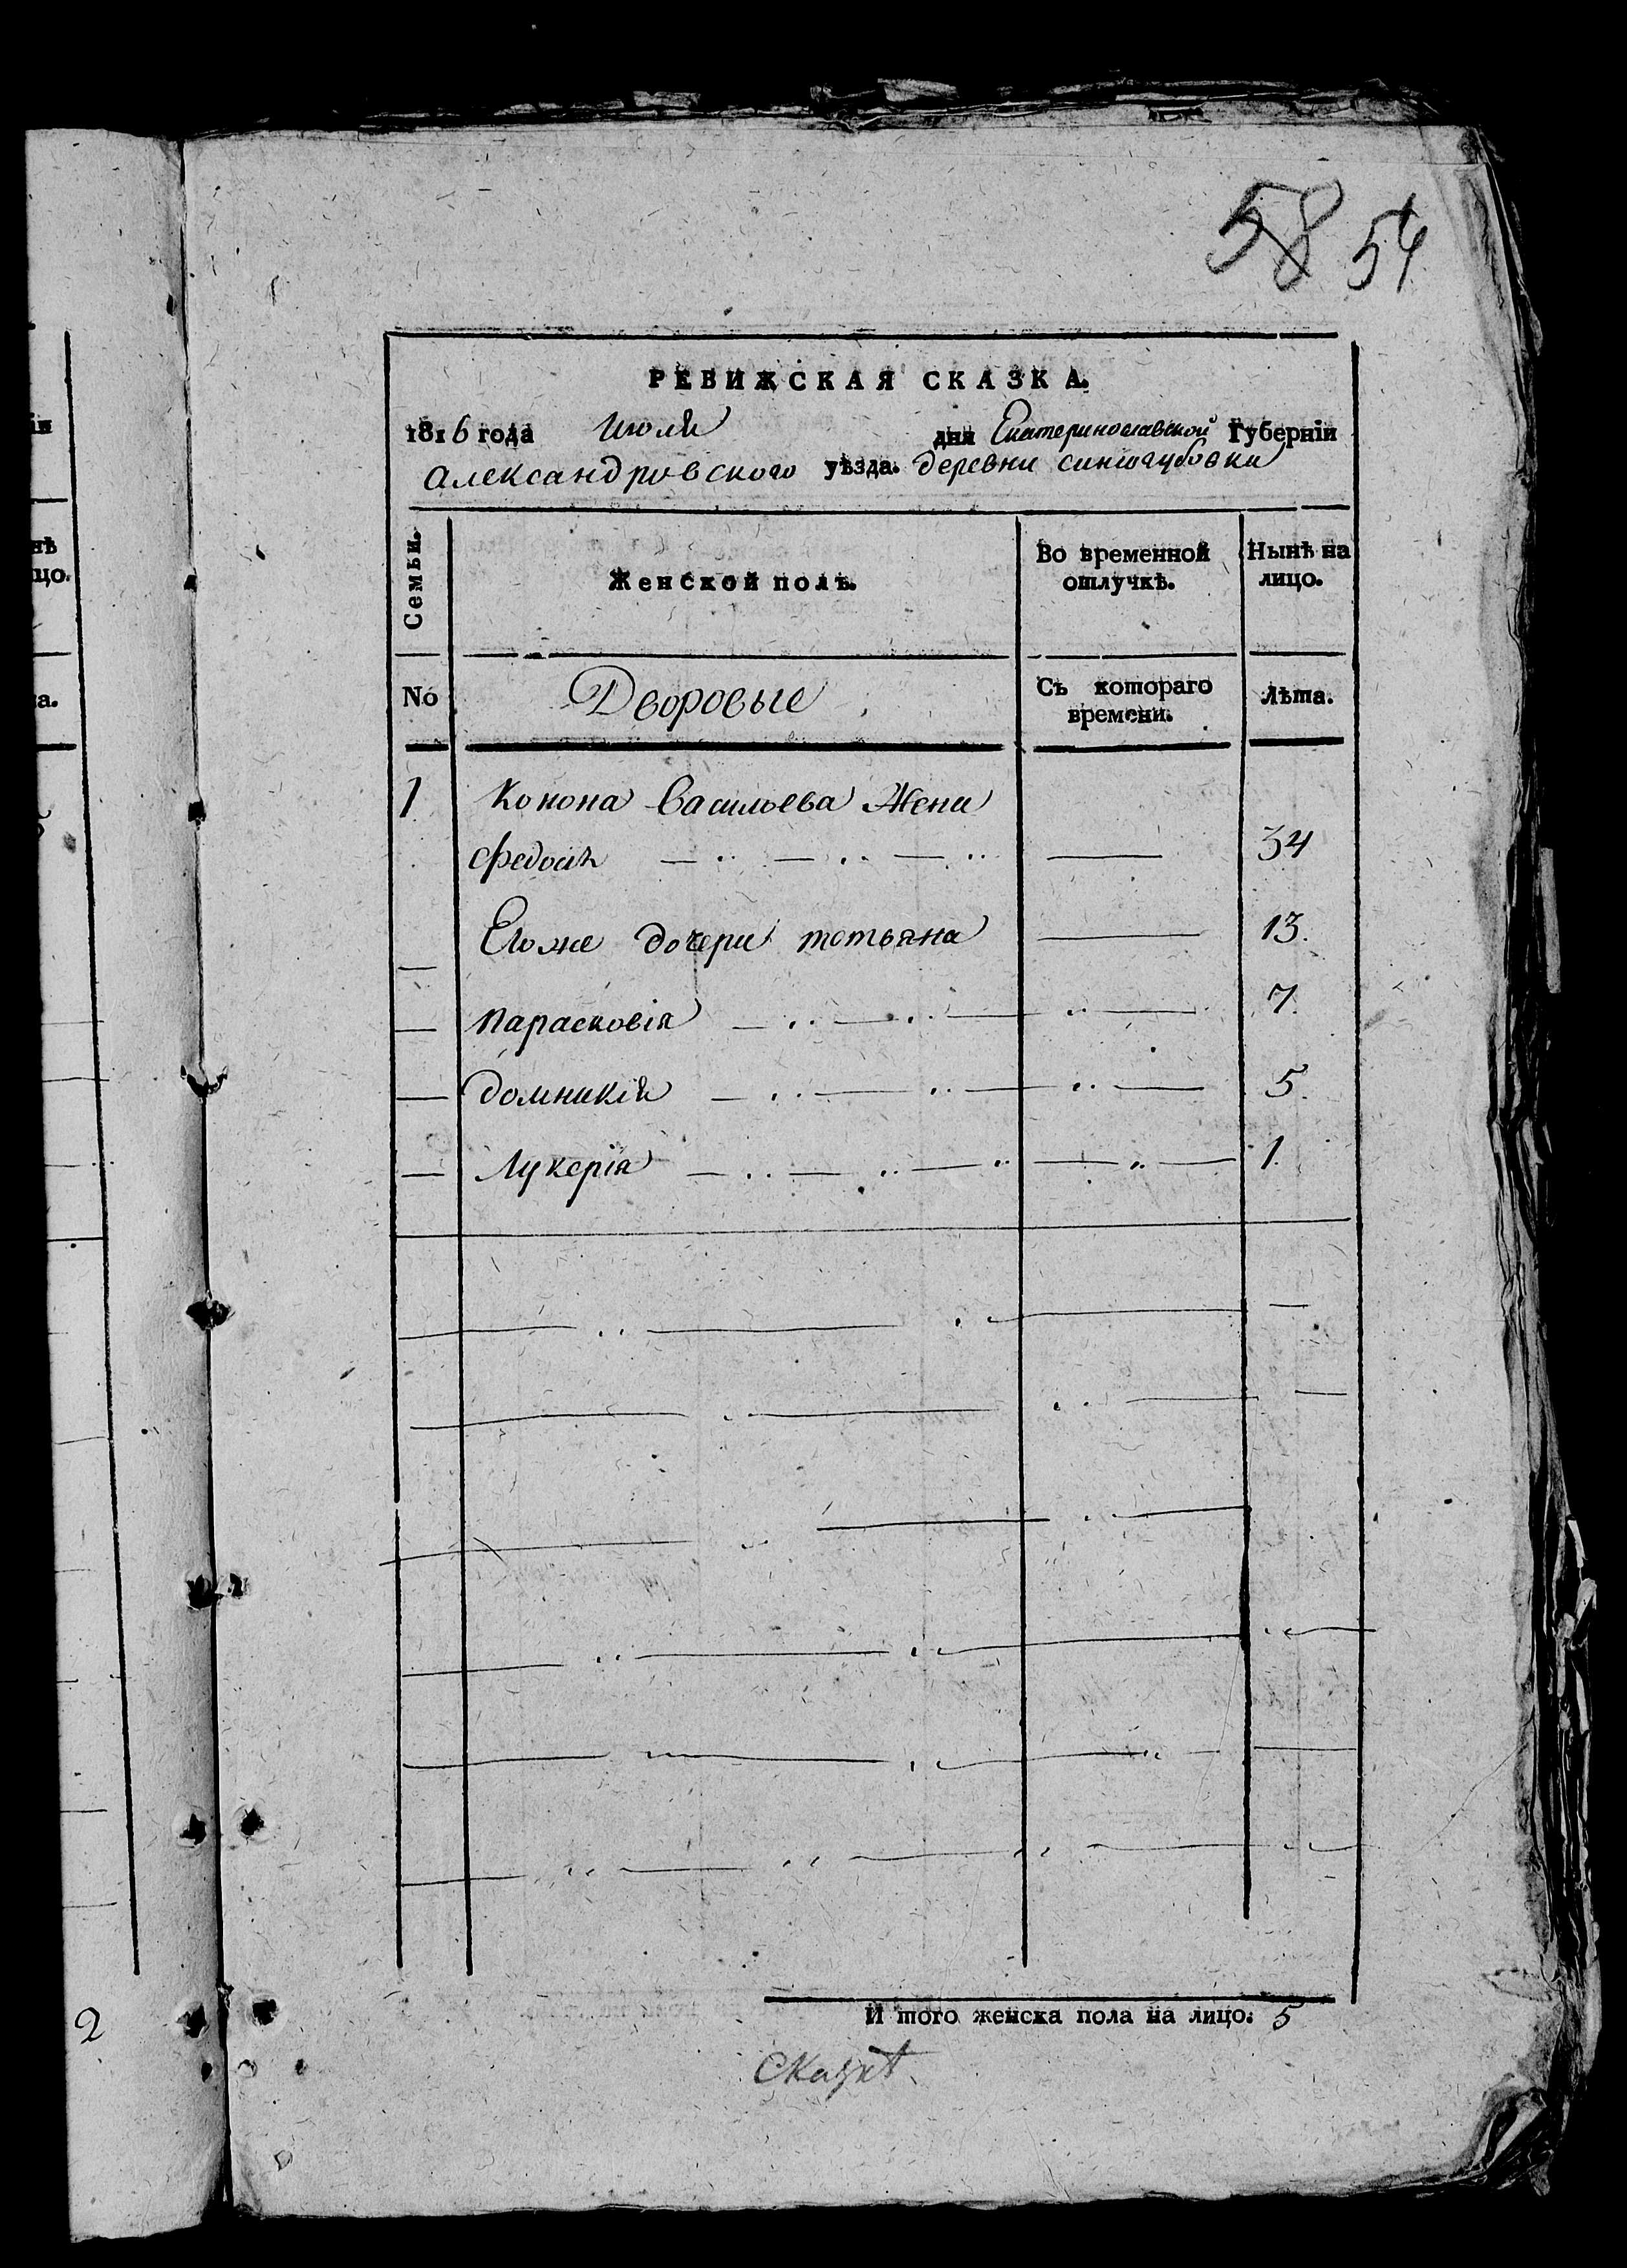 58 54
РЕВИЖСКАЯ СКАЗКА.
1816 года Июля дня Екатеринославской Губерніи
Александровского уѣзда. деревни синегубовки
Семьи.
Женской полъ.
Во временной отлучкѣ.
Нынѣ на лицо.
№
Дворовые
Съ котораго времени.
Лѣта.
1 Конона Васильева Жена
Федосія 34
Егоже дочери татьяна 13.
Парасковія 7.
домникія 5.
Лукерія 1.
И того женска пола на лицо: 5
2